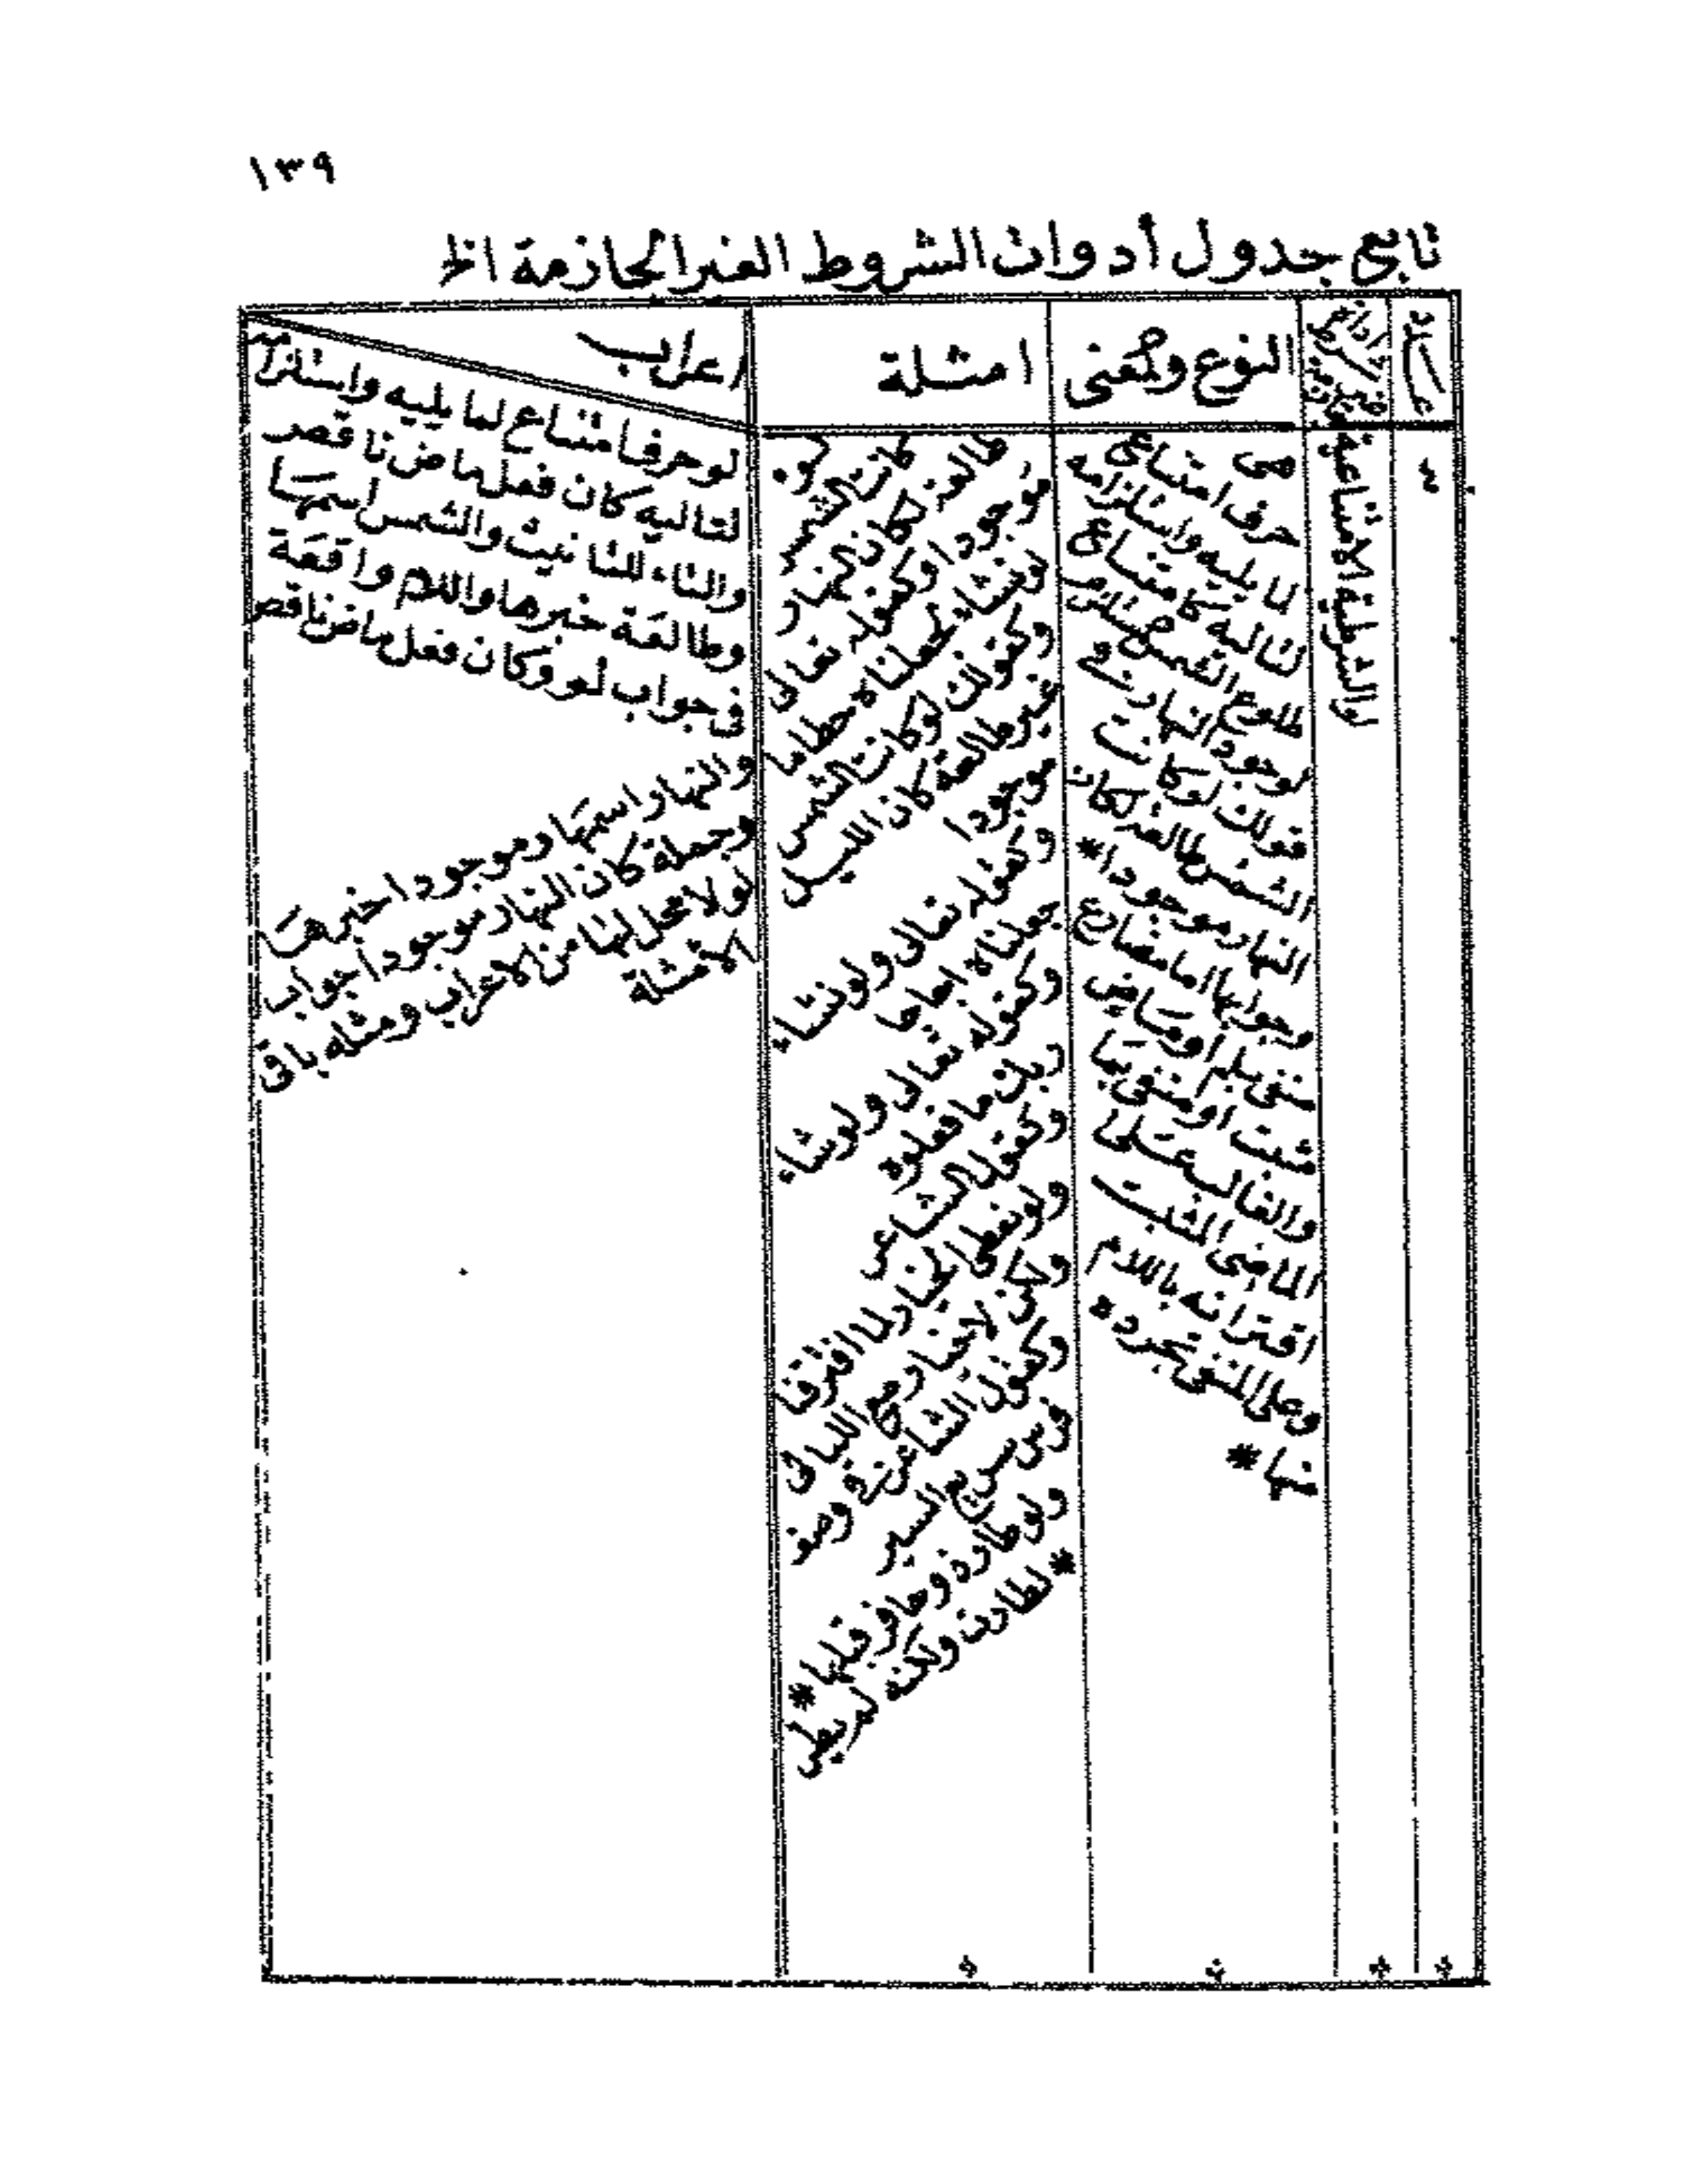 ١٣٩
تابع جدول أدوات الشروط الغير الجازمة الخ
النوع ومعنى
امثلة
اعراب
٤
لو الشرطية الامتناعية
هى
حرف امتناعى
لما يليه واستلزامه
لتاليه كامتناع
طلوع الشمس
لوجود النهار فى
قولك لو كانت
الشمس طالعة لكان
النهار موجودا *
وجوابها اما مضارع
منفى بلم او ماضى
مثبت او منفى بما
والغالب على
الماضى المثبت
اقترانه باللام
وعلى المنفى تجرده
منها *
لو
كانت الشمس
طالعة لكان النهار
موجودا وكقوله تعالى
لو نشاء لجعلناه حطاما
وكقولك لو كانت الشمس
غير طالعة كان الليل
موجودا
وكقوله تعالى ولو نشاء
جعلناه اجاجا
وكقوله تعالى ولو شاء
ربك ما فعلوه
وكقول الشاعر
ولو نعطى الخيار لما افترقنا
ولكن لا خيار مع الليالى
وكقول الشاعر فى وصف
فرس سريع السير
ولو طار ذو حافر قبلها *
* لطارت ولكنه لم يطر
لو حرف امتناع لما يليه واستلزامه
لتاليه كان فعل ماض ناقص
والتاء للتانيث والشمس اسمها
وطالعة خبرها واللام واقعة
فى جواب لو وكان فعل ماض ناقص
والنهار اسمها وموجودا خبرها
وجملة كان النهار موجودا جواب
لو لا محل لها من الاعراب ومثله باقى
الامثلة